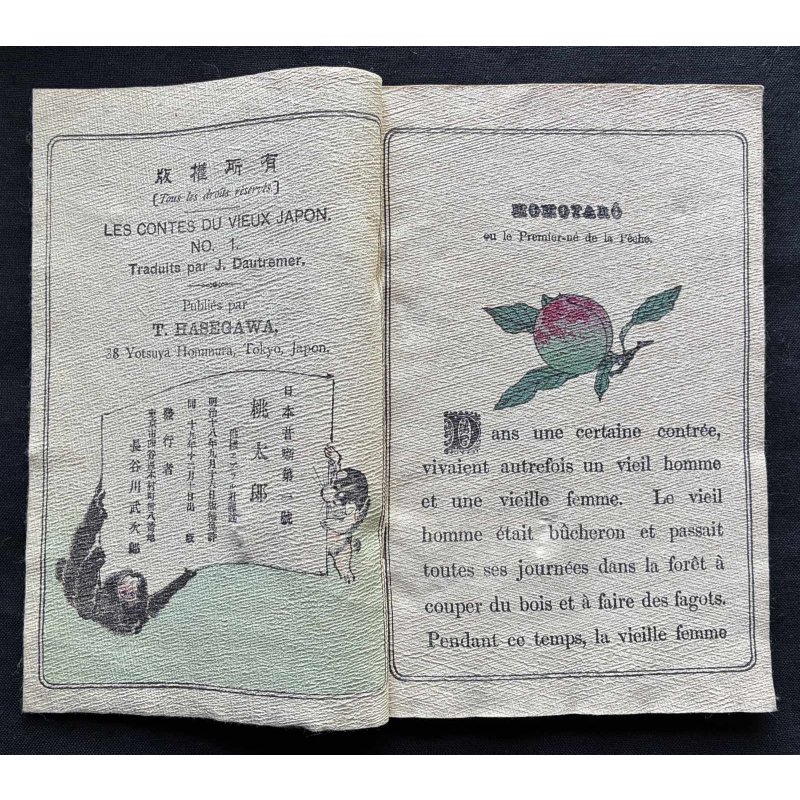 版權所有
[Tous les droits réservés]
LES CONTES DU VIEUX JAPON.
NO. 1.
Traduits par J. Dautremer.
Publiés par
T. HASEGAWA,
38 Yotsuya Hommura, Tokyo, Japon.
日本昔噺第一號
桃太郎
明治十八年九月十八日版權免許
同十九年十二月一日出版
發行者
長谷川武次郎
MOMOTARÔ
ou le Premier-né de la Pêche.
Dans une certaine contrée,
vivaient autrefois un vieil homme
et une vieille femme. Le vieil
homme était bûcheron et passait
toutes ses journées dans la forêt à
couper du bois et à faire des fagots.
Pendant ce temps, la vieille femme